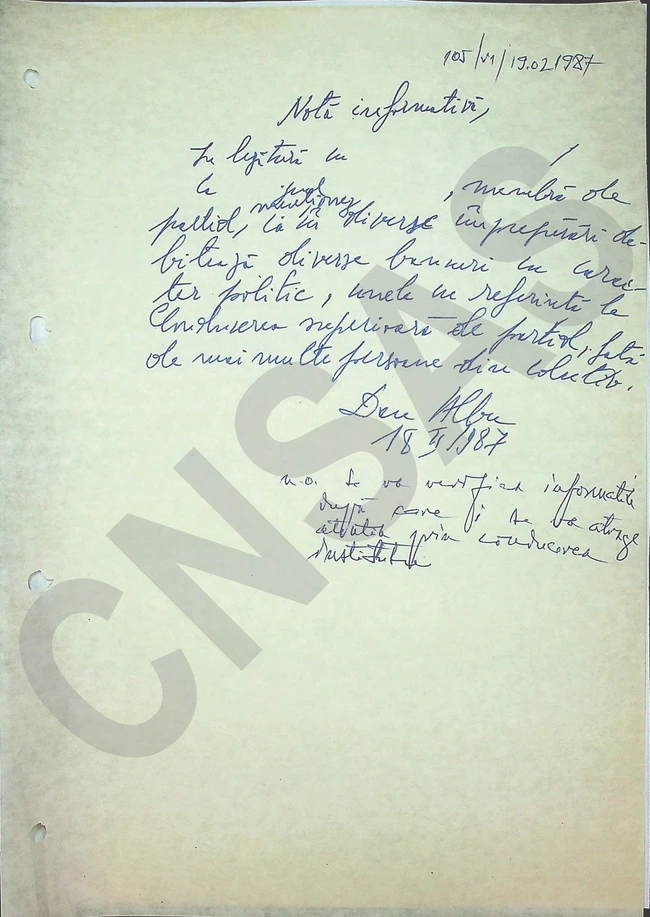 105/VI/19.02.1987
Notă informativă,
În legătură cu
la
menționez
, membră de
partid, că în diverse împrejurări de-
bitează diverse bancuri cu carac-
ter politic, unele cu referință la
Conducerea superioară de partid, față
de mai multe persoane din colectiv.
Dan Albu
18 II 1987
n.o. Se va verifica informațiile
după care i se va atrage
atenția prin conducerea
institutului
CNSAS